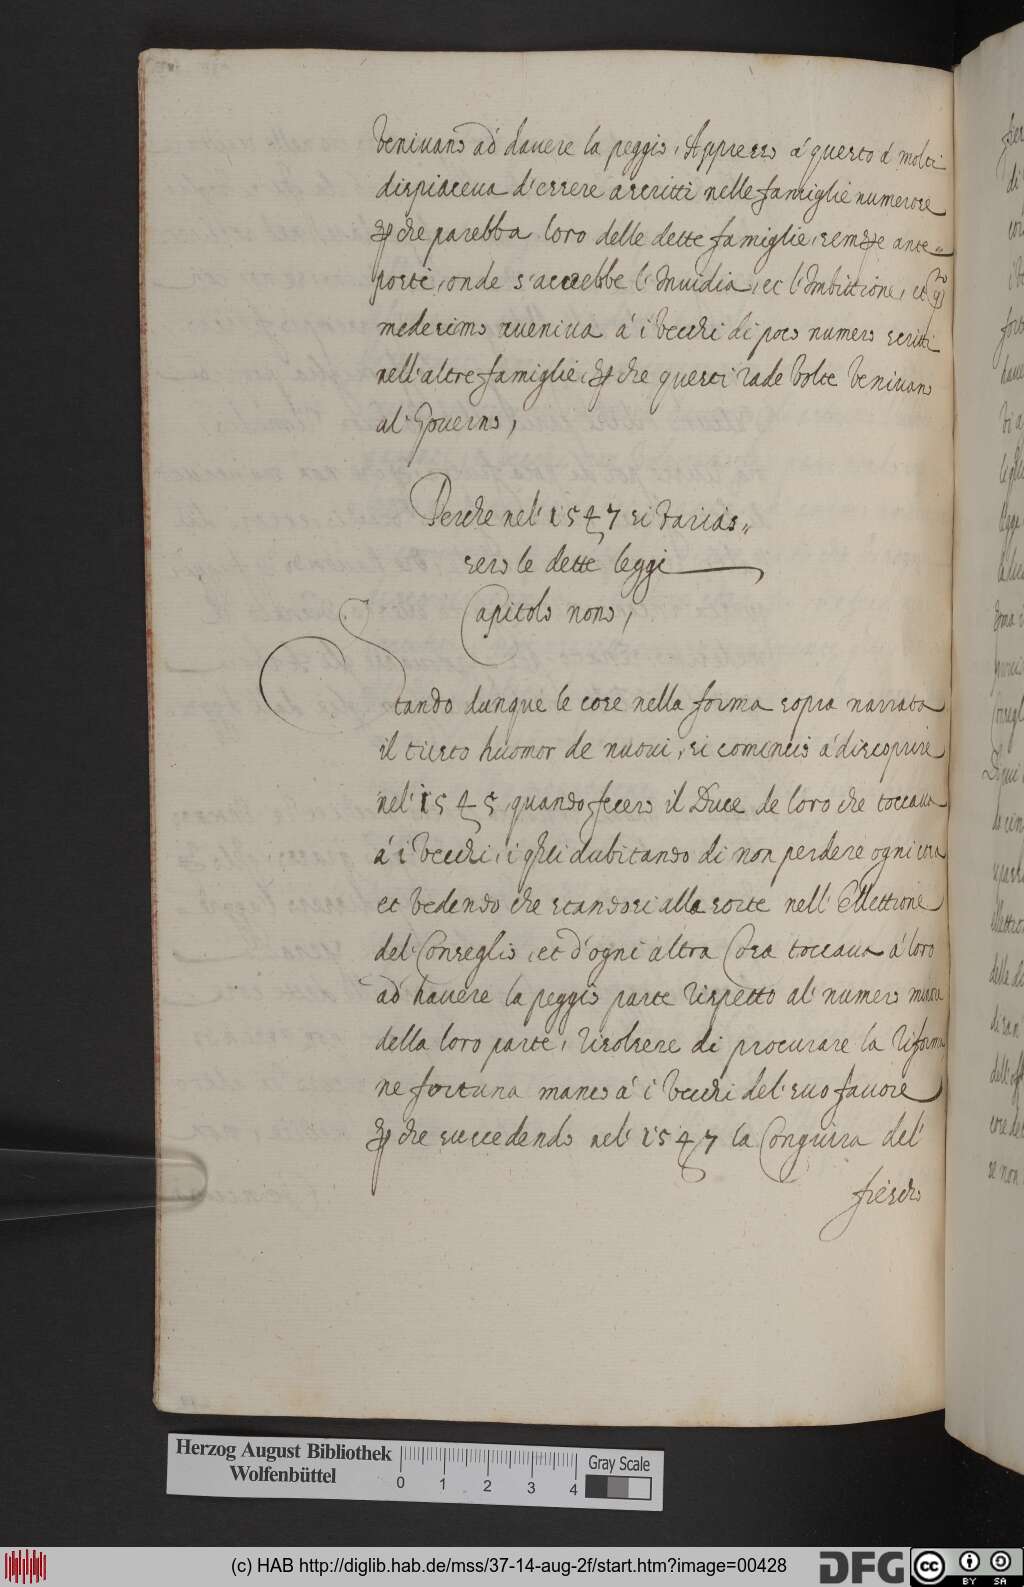 venivano ad havere la peggio, Appresso á questo á molti
dispiaceva d'essere ascritti nelle famiglie numerose
perche parebba loro delle dette famiglie, sempre ante=
posti, onde s'accrebbe l'Invidia, et l'Ambittione, et il
medesimo aveniva á i Vecchi di poco numero scritti
nell'altre famiglie, perche questi rade volte venivano
al Governo,
Perche nel 1547 si varias=
sero le dette leggi
Capitolo nono,
Stando dunque le cose nella forma sopra narrata
il tristo huomor de nuovi, si cominciò á discoprire
nel 1545, quando fecero il Duce de loro che toccava
á i Vecchi, i q.li dubitando di non perdere ogni cosa
et vedendo che standosi alla sorte nell'Elettione
del Conseglio, et d'ogni altra Cosa toccava á loro
ad havere la peggio parte rispetto al numero minore
della loro parte, risolsere di procurare la riforma
ne fortuna manco á i Vecchi del suo favore
perche succedendo nel 1547 la Congiura del
fiescho
Herzog August Bibliothek
Wolfenbüttel
0 1 2 3 4
Gray Scale
(c) HAB http://diglib.hab.de/mss/37-14-aug-2f/start.htm?image=00428
DFG
cc BY SA